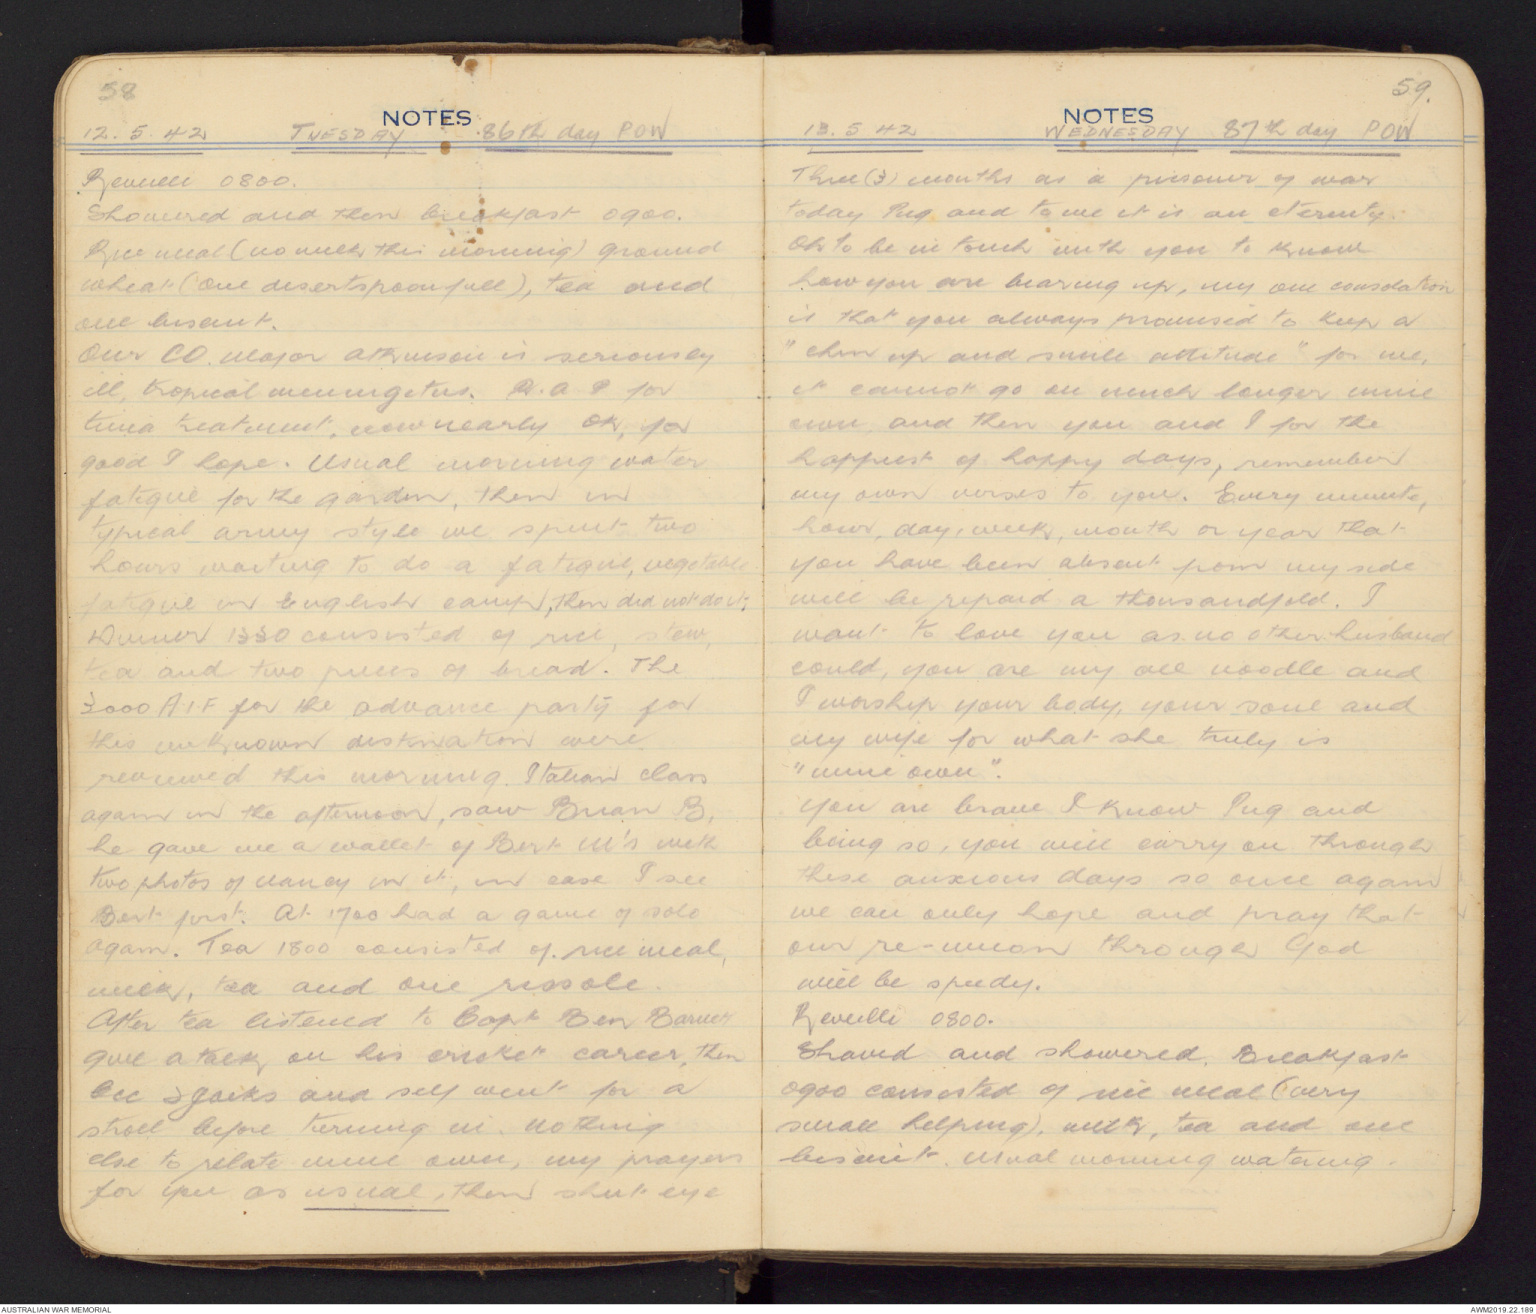 58
NOTES
12.5.42 TUESDAY 86th day POW
Reveille 0800.
Showered and then breakfast 0900.
Rice meal (no milk this morning) ground
wheat (one desertspoonfull), tea and
one biscuit.
Our CO. Major Atkinson is seriously
ill, tropical meningetus. R.A.P for
tinia treatment, now nearly OK, for
good I hope. Usual morning water
fatigue for the garden, then in
typical army style we spent two
hours waiting to do a fatigue, vegetable
fatigue in English camp, then did not do it,
Dinner 1330 consisted of rice, stew,
tea and two pieces of bread. The
3000 AIF for the advance party for
this unknown destination were
reviewed this morning. Italian class
again in the afternoon, saw Brian B,
he gave me a wallet of Bert M's with
two photos of Nancy in it, in case I see
Bert first. At 1700 had a game of solo
again. Tea 1800 consisted of rice meal,
milk, tea and one rissole.
After tea listened to Capt Ben Barnet
give a talk on his cricket career, then
and self went for a
stroll before turning in. Nothing
else to relate mine own, my prayers
for you as usual, then shut eye
59.
NOTES
13.5.42 WEDNESDAY 87th day POW
Three (3) months as a prisoner of war
today Pug and to me it is an eternity.
Oh to be in touch with you to know
how you are bearing up, my one consolation
is that you always promised to keep a
"chin up and smile attitude" for me,
it cannot go on much longer mine
own, and then you and I for the
happiest of happy days, remember
my own verses to you. Every minute,
hour, day, week, month or year that
you have been absent from my side
will be repaid a thousandfold. I
want to love you as no other husband
could, you are my all noodle and
I worship your body, your soul and
my wife for what she truly is
"mine own".
You are brave I know Pug and
being so, you will carry on through
these anxious days so once again
we can only hope and pray that
our re-union through God
will be speedy.
Reveille 0800.
Shaved and showered. Breakfast
0900 consisted of rice meal (very
small helping), milk, tea and one
biscuit. Usual morning watering.
AUSTRALIAN WAR MEMORIAL
AWM2019.22.189